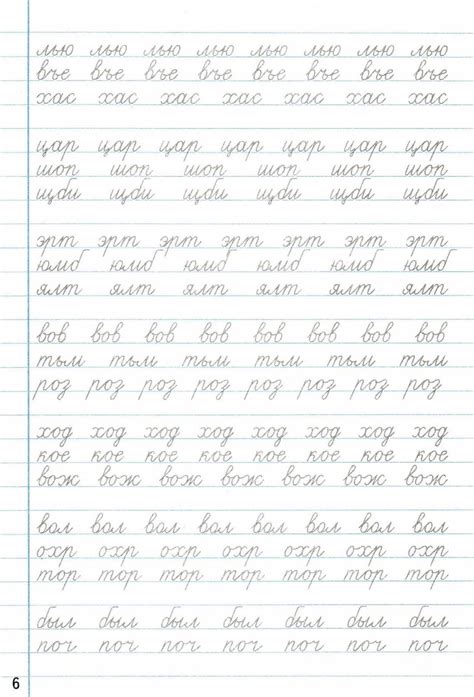 лью лью лью лью лью лью лью лью
въе въе въе въе въе въе въе въе
хас хас хас хас хас хас хас
цар цар цар цар цар цар цар
шоп шоп шоп шоп шоп шоп
щби щби щби щби щби щби
эрт эрт эрт эрт эрт эрт эрт
юмб юмб юмб юмб юмб юмб
ялт ялт ялт ялт ялт ялт
вов вов вов вов вов вов вов вов
тым тым тым тым тым тым
роз роз роз роз роз роз роз роз
ход ход ход ход ход ход ход ход
кое кое кое кое кое кое кое кое
вож вож вож вож вож вож вож
вол вол вол вол вол вол вол вол
охр охр охр охр охр охр охр
тор тор тор тор тор тор тор
был был был был был был был
поч поч поч поч поч поч поч
6